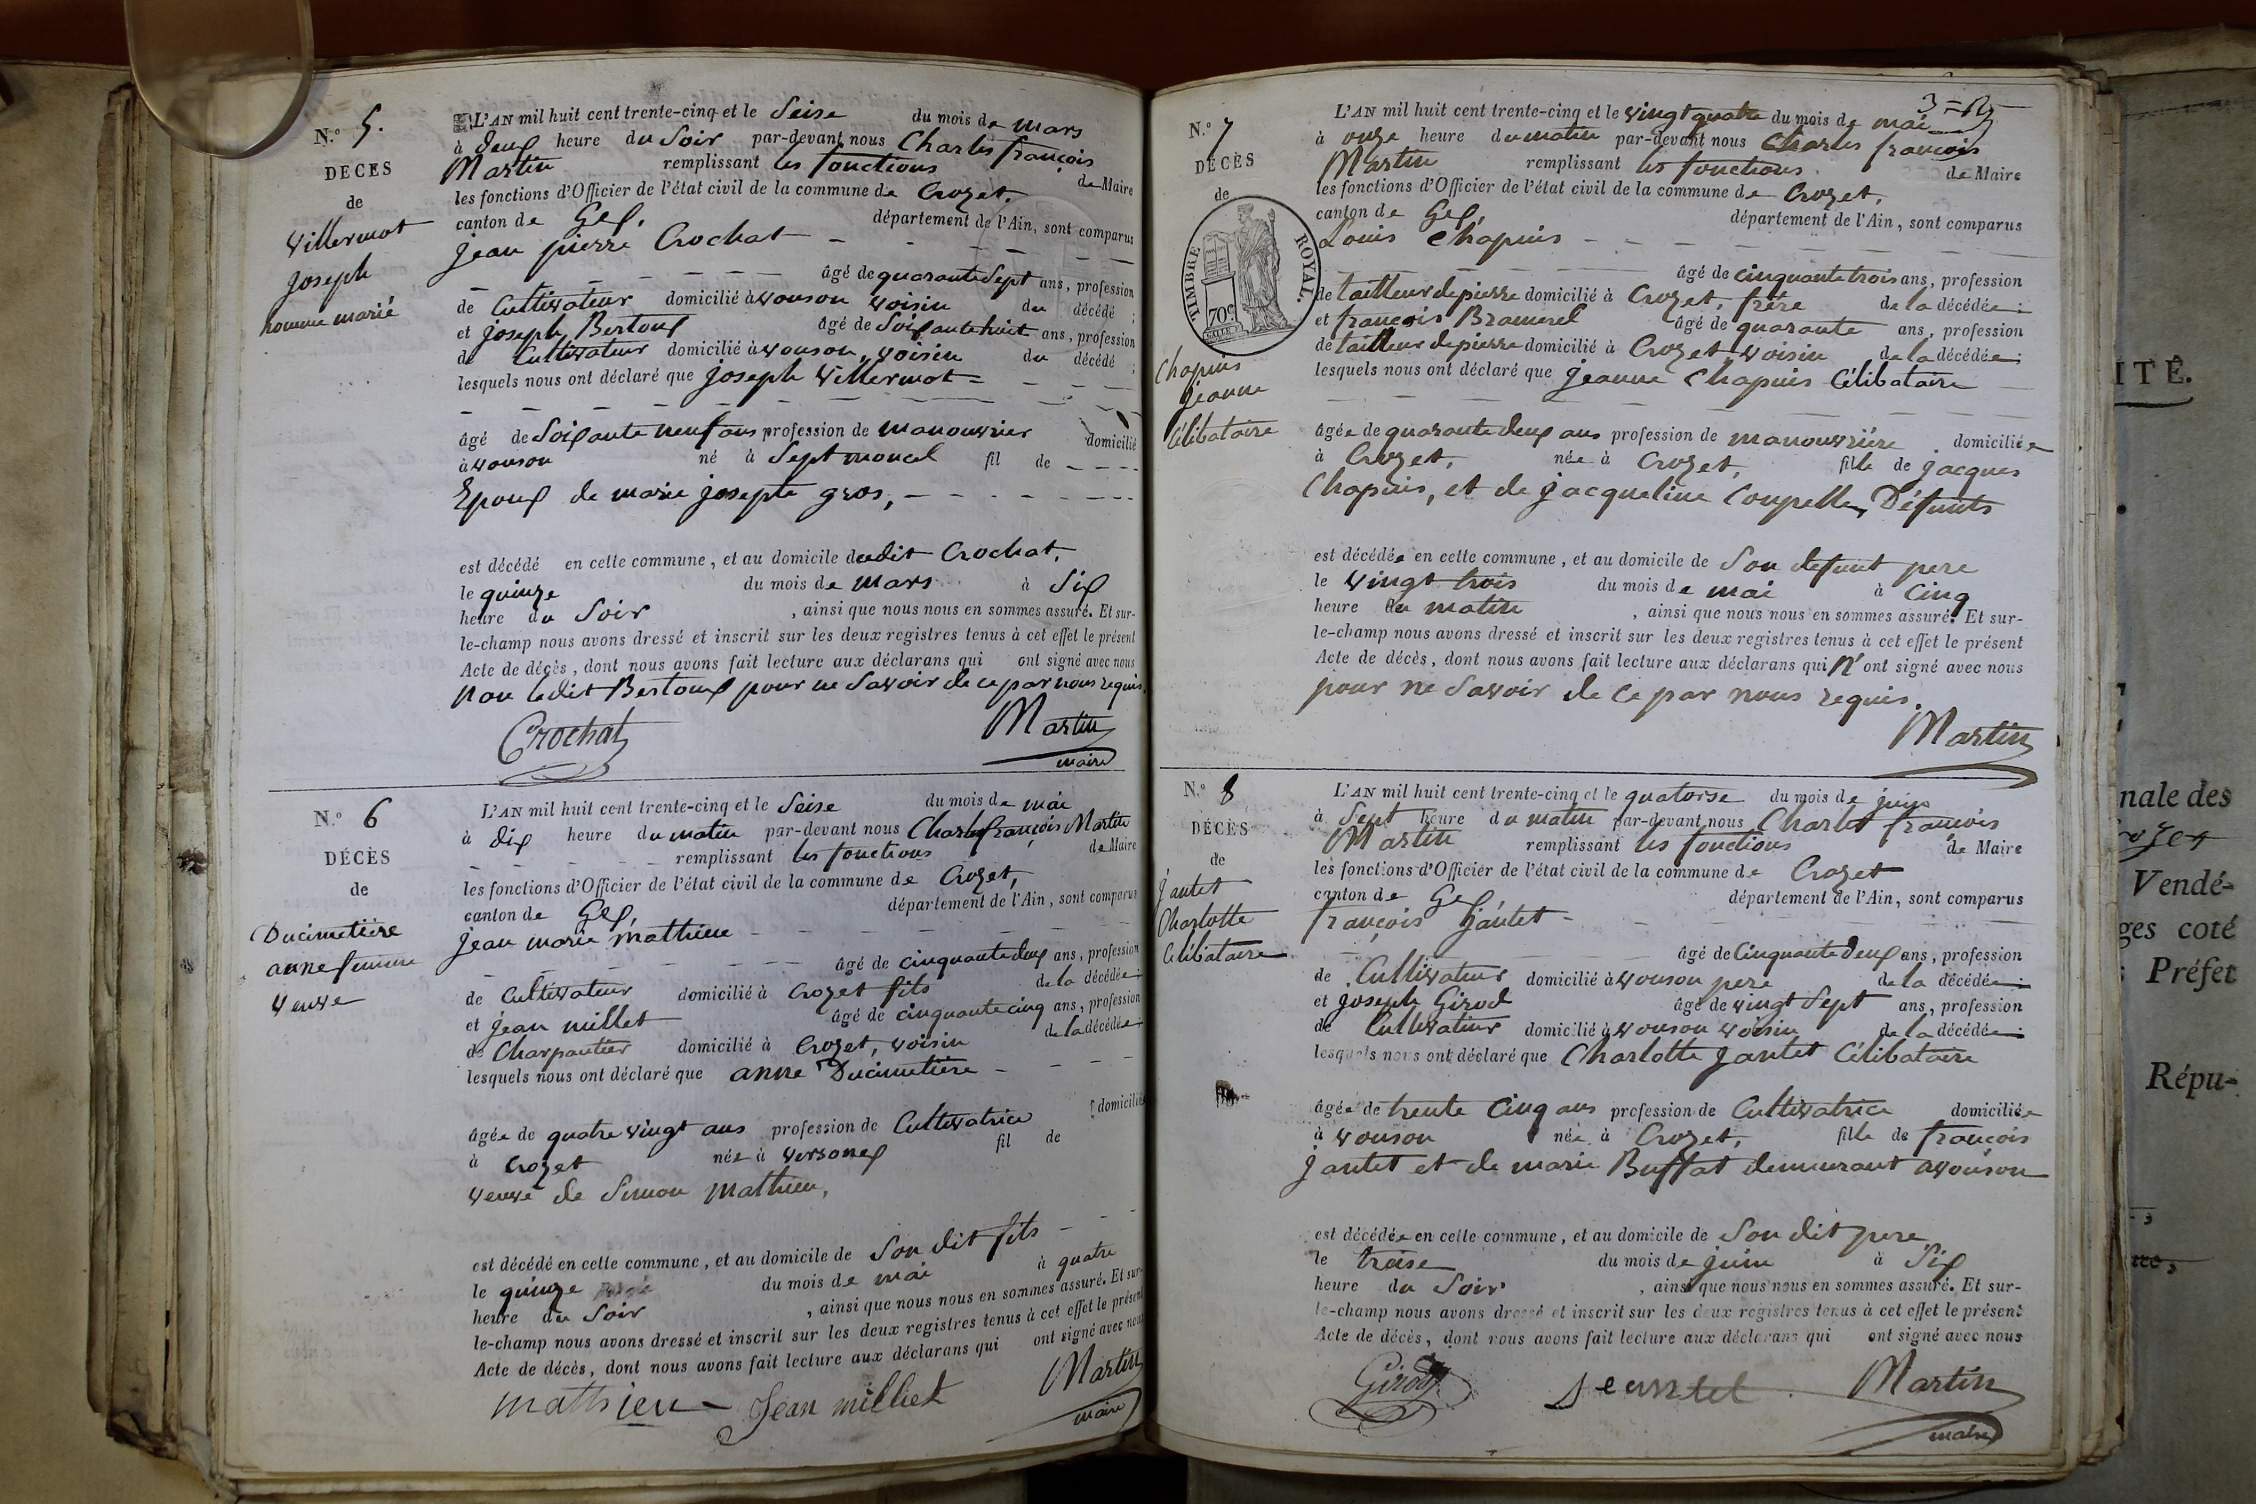 N.° 5.
DECES
de
Villermot
joseph
homme marié
L'AN mil huit cent trente-cinq et le Seise du mois de mars
à deux heure du Soir par-devant nous Charles françois
Martin remplissant les fonctions de Maire
les fonctions d'Officier de l'état civil de la commune de Crozet.
canton de Gex. département de l'Ain, sont comparus
jean pierre Crochat
âgé de quarante Sept ans, profession
de Cultivateur domicilié à vouson voisin du décédé ;
et joseph Bertoux âgé de Soixante huit ans, profession
de Cultivateur domicilié à vouson, voisin du décédé ;
lesquels nous ont déclaré que joseph Villermot =
âgé de Soixante neuf ans profession de manouvrier domicilié
à vouson né à Sept moncel fil de
Epoux de marie josepte gros,
est décédé en cette commune, et au domicile dudit Crochat,
le quinze du mois de mars à Six
heure du Soir , ainsi que nous nous en sommes assuré. Et sur-
le-champ nous avons dressé et inscrit sur les deux registres tenus à cet effet le présent
Acte de décès, dont nous avons fait lecture aux déclarans qui ont signé avec nous
non ledit Bertoux pour ne Savoir de ce par nous requis.
Crochat Martin
maire
N.° 6
DÉCÈS
de
Ducimetière
anne femme
veuve
L'AN mil huit cent trente-cinq et le Seise du mois de mai
à dix heure du matin par-devant nous Charles françois Martin
remplissant les fonctions de Maire
les fonctions d'Officier de l'état civil de la commune de Crozet,
canton de Gex, département de l'Ain, sont comparus
jean marie mathieu
âgé de cinquante deux ans, profession
de Cultivateur domicilié à Crozet fils de la décédée ;
et jean millet âgé de cinquante cinq ans, profession
de Charpantier domicilié à Crozet, voisin de la décédée ;
lesquels nous ont déclaré que anne Ducimetière
âgée de quatre vingt ans profession de Cultivatrice domicilié
à Crozet née à versonex fil de
veuve de Simon mathieu,
est décédé en cette commune, et au domicile de Son dit fils
le quinze du mois de mai à quatre
heure du Soir , ainsi que nous nous en sommes assuré. Et sur-
le-champ nous avons dressé et inscrit sur les deux registres tenus à cet effet le présent
Acte de décès, dont nous avons fait lecture aux déclarans qui ont signé avec nous
mathieu Jean milliet Martin
maire
N.° 7
DÉCÈS
de
TIMBRE ROYAL.
70c
Chapuis
jeanne
Célibataire
L'AN mil huit cent trente-cinq et le vingt quatre du mois de mai
à onze heure du matin par-devant nous Charles francois
Martin remplissant les fonctions de Maire
les fonctions d'Officier de l'état civil de la commune de Crozet,
canton de Gex, département de l'Ain, sont comparus
Louis Chapuis
âgé de cinquante trois ans, profession
de tailleur de pierre domicilié à Crozet, frère de la décédée ;
et françois Bramerel âgé de quarante ans, profession
de tailleur de pierre domicilié à Crozet voisin de la décédée ;
lesquels nous ont déclaré que jeanne Chapuis Célibataire
âgée de quarante deux ans profession de manouvrière domiciliée
à Crozet, née à Crozet, fille de jacques
Chapuis, et de jacqueline Coupelle, Défunts
est décédée en cette commune, et au domicile de Son defunt pere
le vingt trois du mois de mai à Cinq
heure du matin , ainsi que nous nous en sommes assuré. Et sur-
le-champ nous avons dressé et inscrit sur les deux registres tenus à cet effet le présent
Acte de décès, dont nous avons fait lecture aux déclarans qui n'ont signé avec nous
pour ne Savoir de ce par nous requis.
Martin
N.° 8
DÉCÈS
de
jantet
Charlotte
Célibataire
L'AN mil huit cent trente-cinq et le quatorse du mois de juin
à Sept heure du matin par-devant nous Charles francois
Martin remplissant les fonctions de Maire
les fonctions d'Officier de l'état civil de la commune de Crozet
canton de Gex, département de l'Ain, sont comparus
françois jantet
âgé de Cinquante Deux ans, profession
de Cultivateur domicilié à vouson pere de la décédée ;
et joseph Girod âgé de vingt Sept ans, profession
de Cultivateur domicilié à vouson voisin de la décédée ;
lesquels nous ont déclaré que Charlotte jantet Célibataire
âgée de trente Cinq ans profession de Cultivatrice domiciliée
à vouson née à Crozet, fille de francois
jantet et de marie Buffat demeurant avouson
est décédée en cette commune, et au domicile de Son dit pere
le treise du mois de juin à Six
heure du Soir , ainsi que nous nous en sommes assuré. Et sur-
le-champ nous avons dressé et inscrit sur les deux registres tenus à cet effet le présent
Acte de décès, dont nous avons fait lecture aux déclarans qui ont signé avec nous
Girod Martin
maire
ITÉ.
nale des
Vendé-
ges coté
Préfet
Répu-